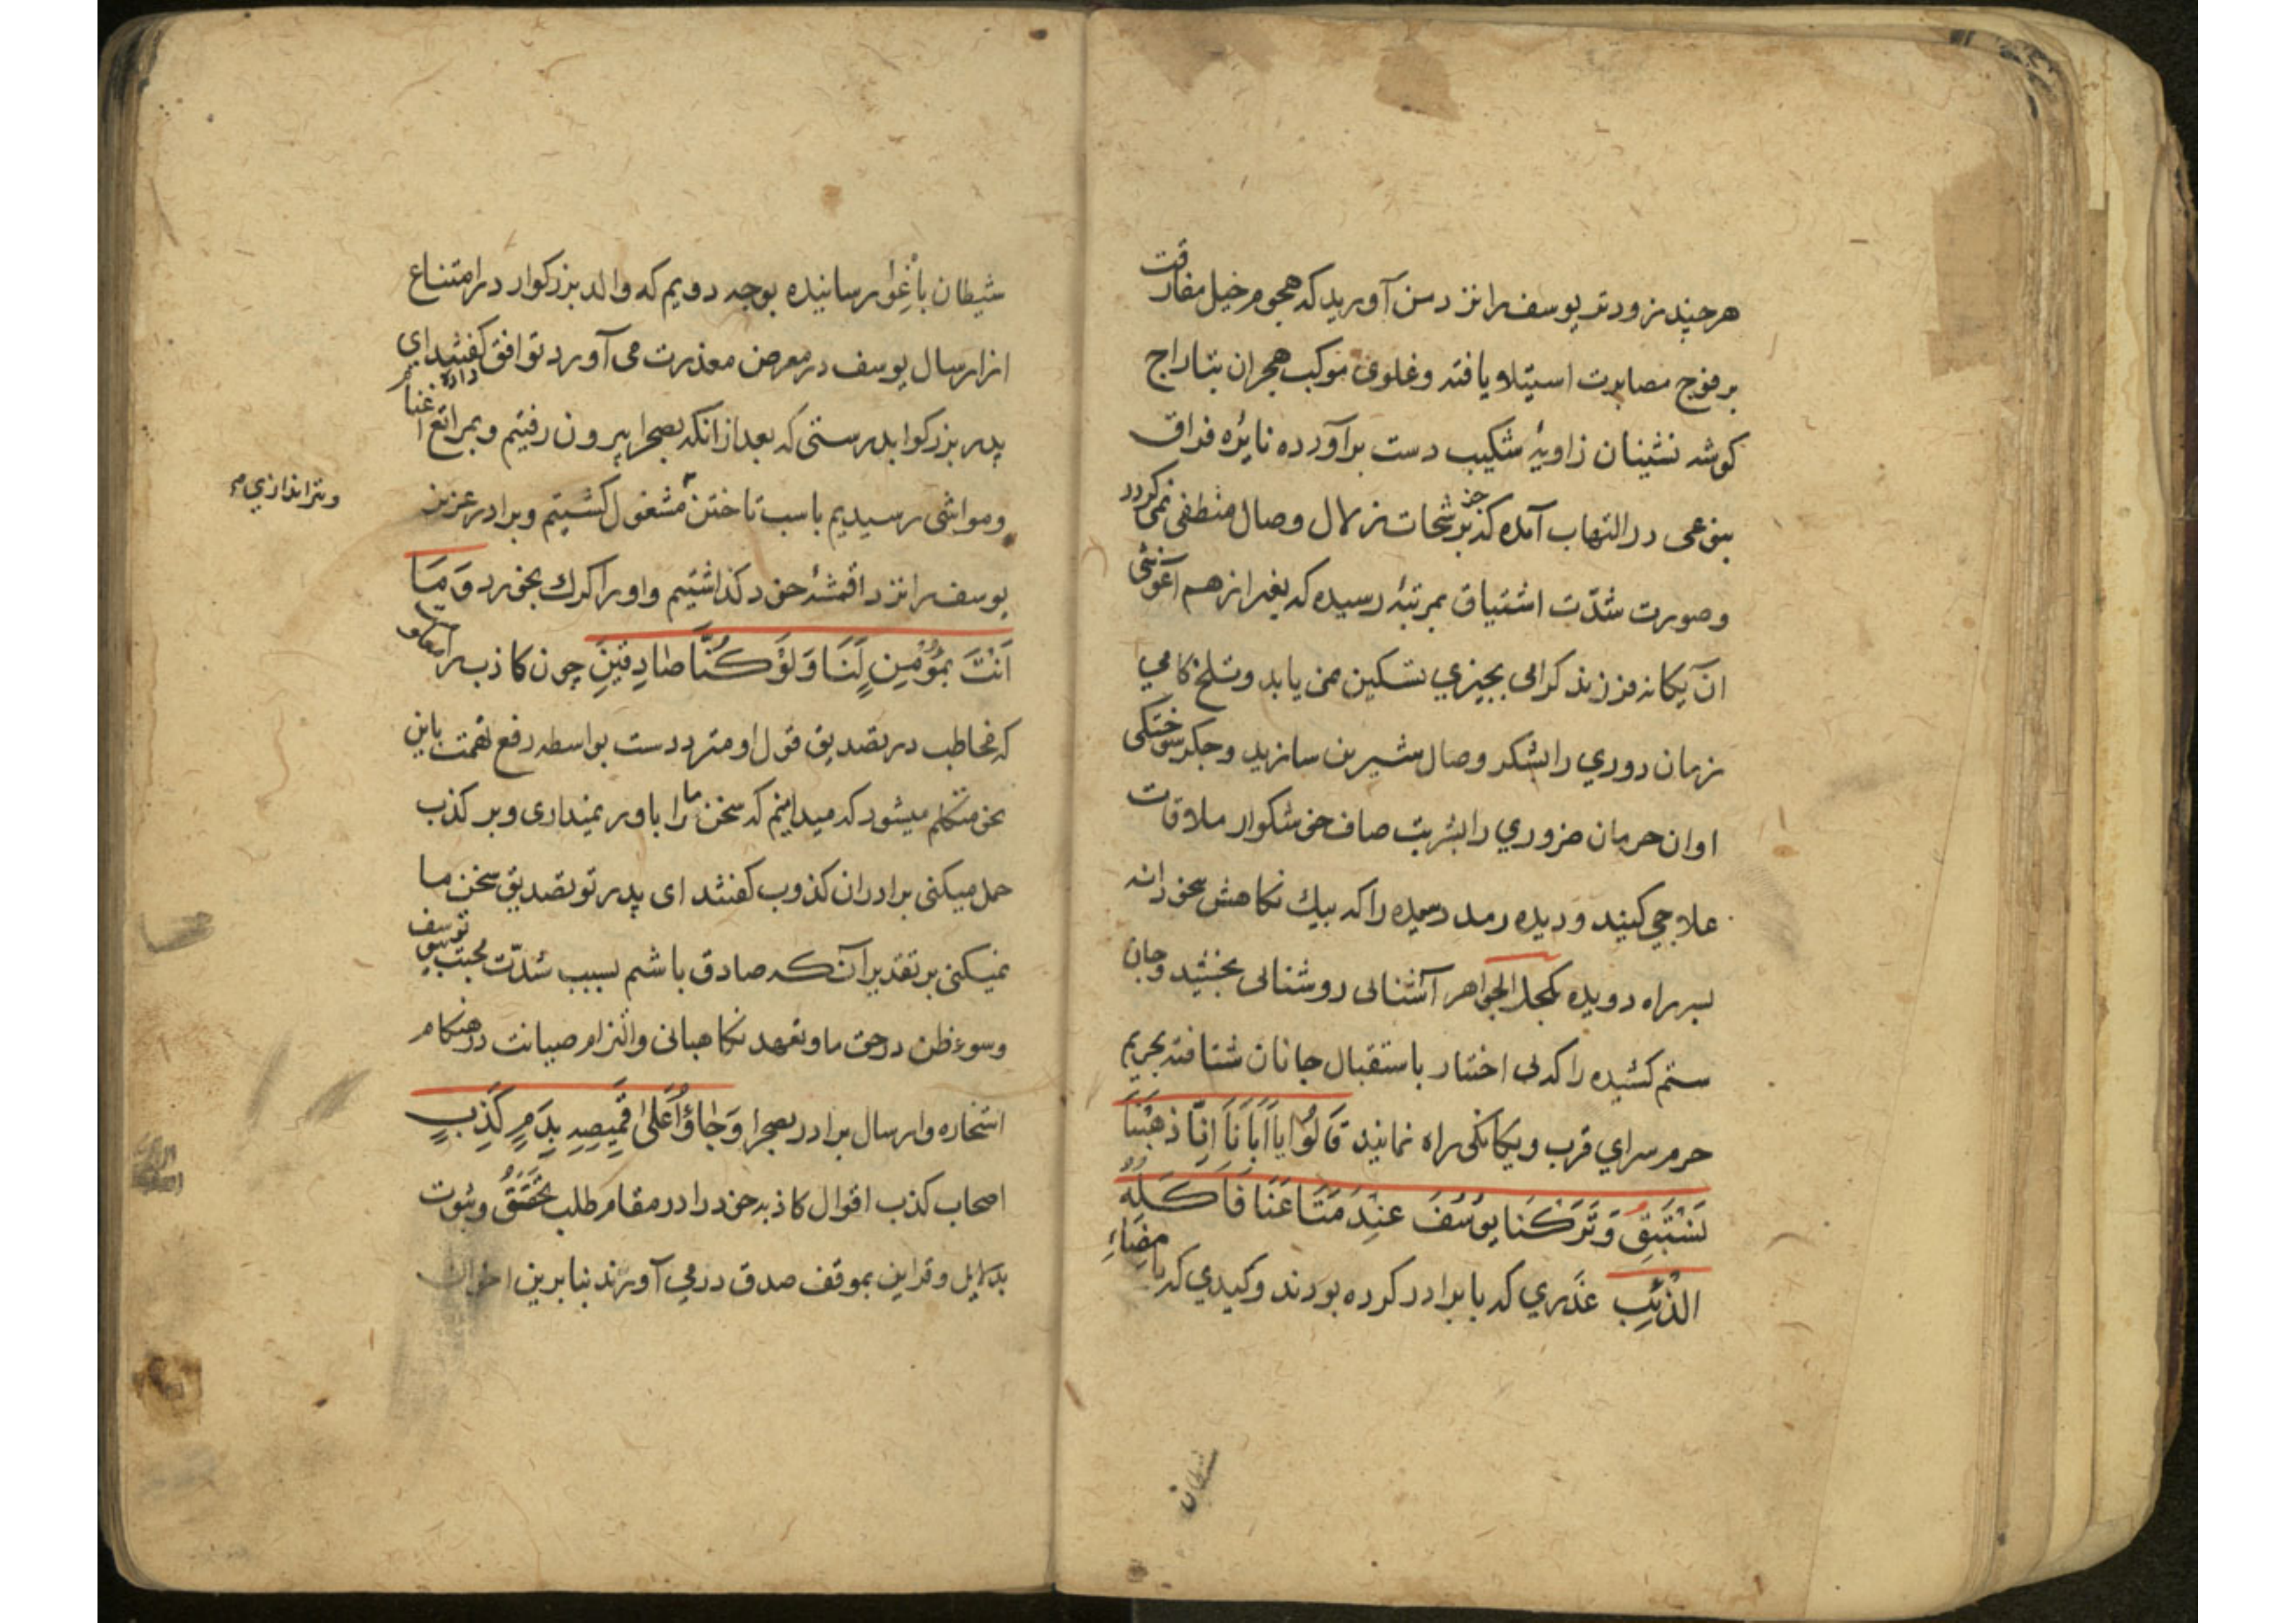 هرچند زودتر یوسف را نزد من آورید که هجوم خیل مفارقت
بر فوج مصابرت استیلا یافته و غلوی موکب هجران بتاراج
کوشه نشینان زاویهٔ شکیب دست برآورده نایره فراق
بنوعی در التهاب آمده که جز برشحات زلال وصال منطفی نمی کردد
و صورت شدّت اشتیاق بمرتبهٔ رسیده که بغیر از هم آغوشی
آن یکانه فرزند کرامی بچیزی تسکین نمی یابد و تلخ کامی
زمان دوری را بشکر وصال شیرین سازید و جکر سوختکی
اوان حرمان ضروری را بشربت صاف خوشکوار ملاقات
علاجی کنید و دیده رمد رسیده را که بیك نکاهش
بسر راه دویده بکحل الجواهر آشنائی روشنائی بخشید و جان
ستم کشیده را که بی اختیار باستقبال جانان شتافته بحریم
حرم سرای قرب و یکانکی راه نمایند قَالُوا یَا اَبَانَا اِنَّا ذَهَبْنَا
نَسْتَبِقُ وَتَرَکْنَا یُوسُفَ عِنْدَ مَتَاعِنَا فَاَکَلَهُ
الذِّئْبُ غدری که با برادر کرده بودند و کیدی که بامضاء
شیطان
شیطان باغوا رسانیده بوجه دویم که والد بزرکوار در امتناع
از ارسال یوسف در معرض معذرت می آورد توافق داده کفتند ای
پدر بزرکوار بدرستی که بعد از آنکه بصحرا بیرون رفتیم و بمراتع اغنام
و مواشی رسیدیم باسب تاختن مشغول کشتیم و برادر عزیز
و تیراندازی
یوسف را نزد اقمشهٔ خود کذاشتیم و او را کرك بخورد وَمَا
اَنْتَ بِمُؤْمِنٍ لَنَا وَلَوْ کُنَّا صَادِقِینَ چون کاذب را
که مخاطب در تصدیق قول او متردد است بواسطه دفع تهمت باین
نحو متکلم میشود که میدانیم که سخن ما را باور نمیداری و بر کذب
حمل میکنی برادران کذوب کفتند ای پدر تو تصدیق سخن ما
نمیکنی بر تقدیر آنکه صادق باشم بسبب شدّت محبت تو بیوسف
و سوء ظن در حق ما و تعهد نکاهبانی و التزام صیانت در هنکام
استخاره و ارسال برادر بصحرا وَجَاؤُا عَلَی قَمِیصِهِ بِدَمٍ کَذِبٍ
اصحاب کذب اقوال کاذبه خود را در مقام طلب تحقّق و ثبوت
بدلایل و قراین بموقف صدق در می آورند بنابرین اخوان